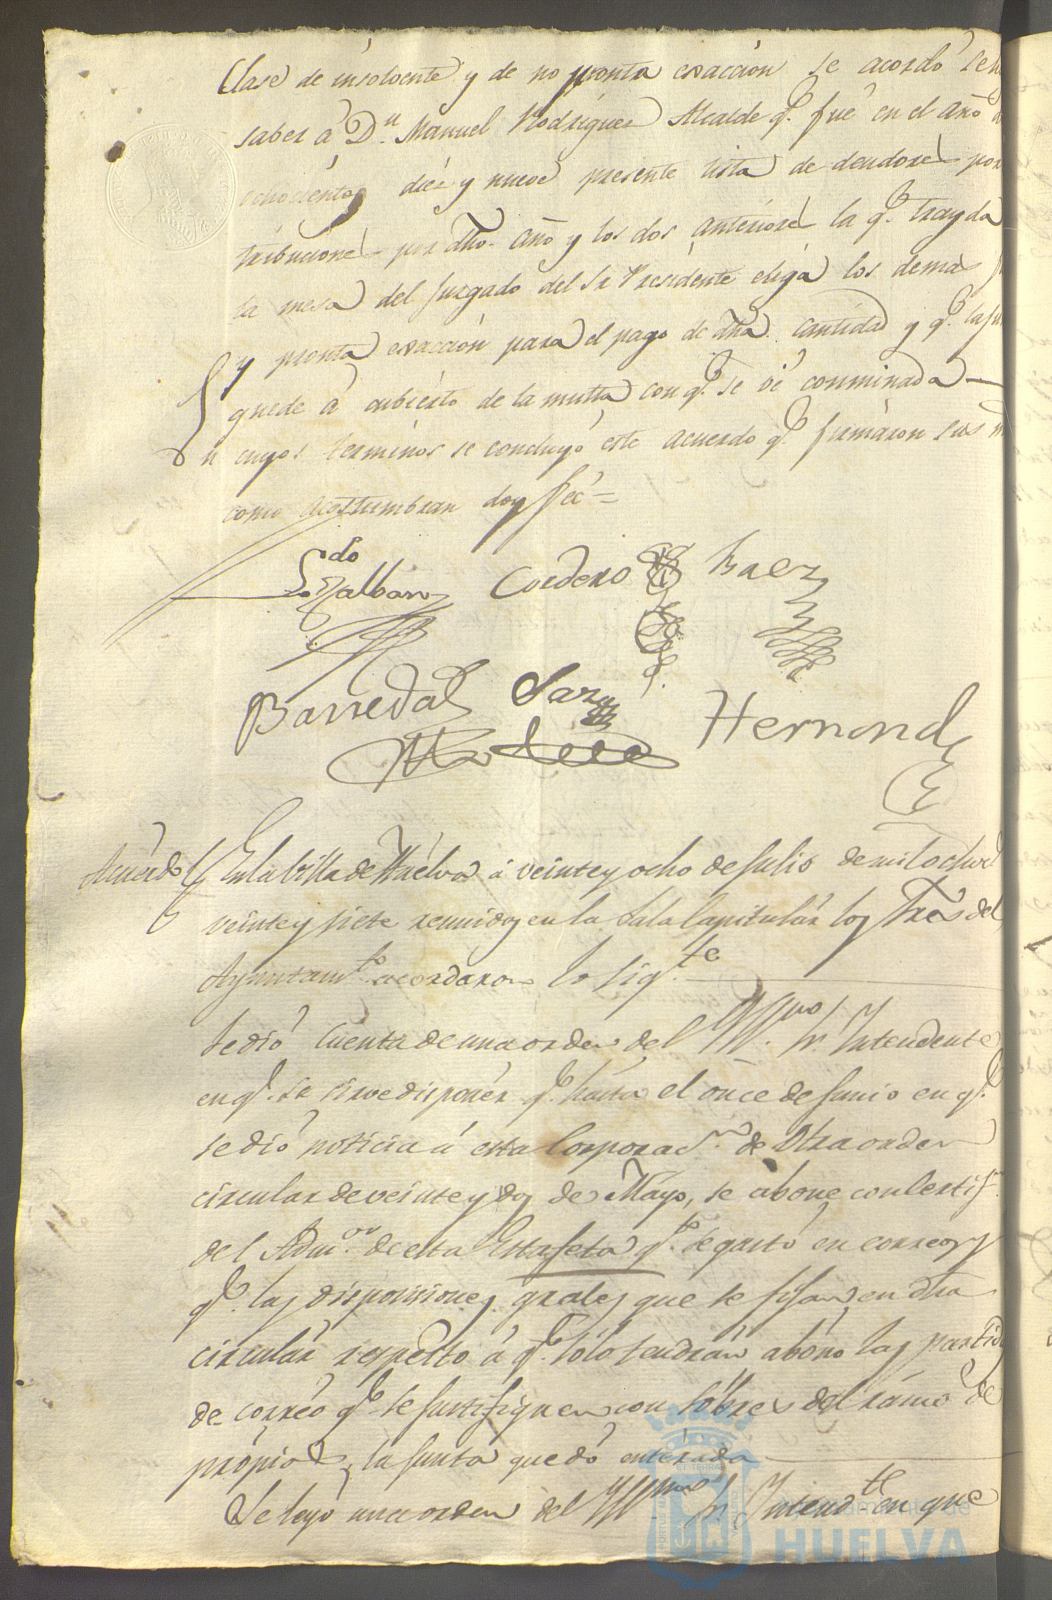 Clase de insolvente y de no pronta exacción se acordó se
saber á Dn. Manuel Rodríguez Alcalde q.e fué en el año
ochocientos diez y nueve presente lista de deudores por
tribuciones por dho. año y los dos anteriores la q.e trayda
la mesa del Juzgado del Sr Presidente elija los demas
y pronta exacción para el pago de dha. cantidad y q.e la
quede á cubierto de la multa con q.e se vé conminada —
En cuyos terminos se concluyó este acuerdo q.e firmáron sus
como acostumbran doy feé =
L.do Galban Cordero Baez
Barreda Saez Hernand
Acuerdo En la billa de Huelva á veinte y ocho de Julio de mil ochoc
veinte y siete reunidos en la Sala Capitulár los Sres del
Ayuntam.to acordaron lo sig.te
Se dió Cuenta de una orden del Yllmo. Sr. Intendente
en q.e se sirve disponér q.e hasta el once de Junio en q.e
se dió noticia á esta Corporac.n de Otra orden
circular de veinte y dos de Mayo, se abone con Certif.n
del Adm.or de esta Estafeta q.e se gastó en correos y
q.e las disposiciones grales que se fijan en dha
circulár respecto á q.e sólo tendrán abóno las partid
de corréo q.e se justifiquen con sóbres del rámo de
própios, la Junta quedó enterada
Se leyó una orden del Yllmo Sr. Intend.te en que
Ayuntamiento de
HUELVA